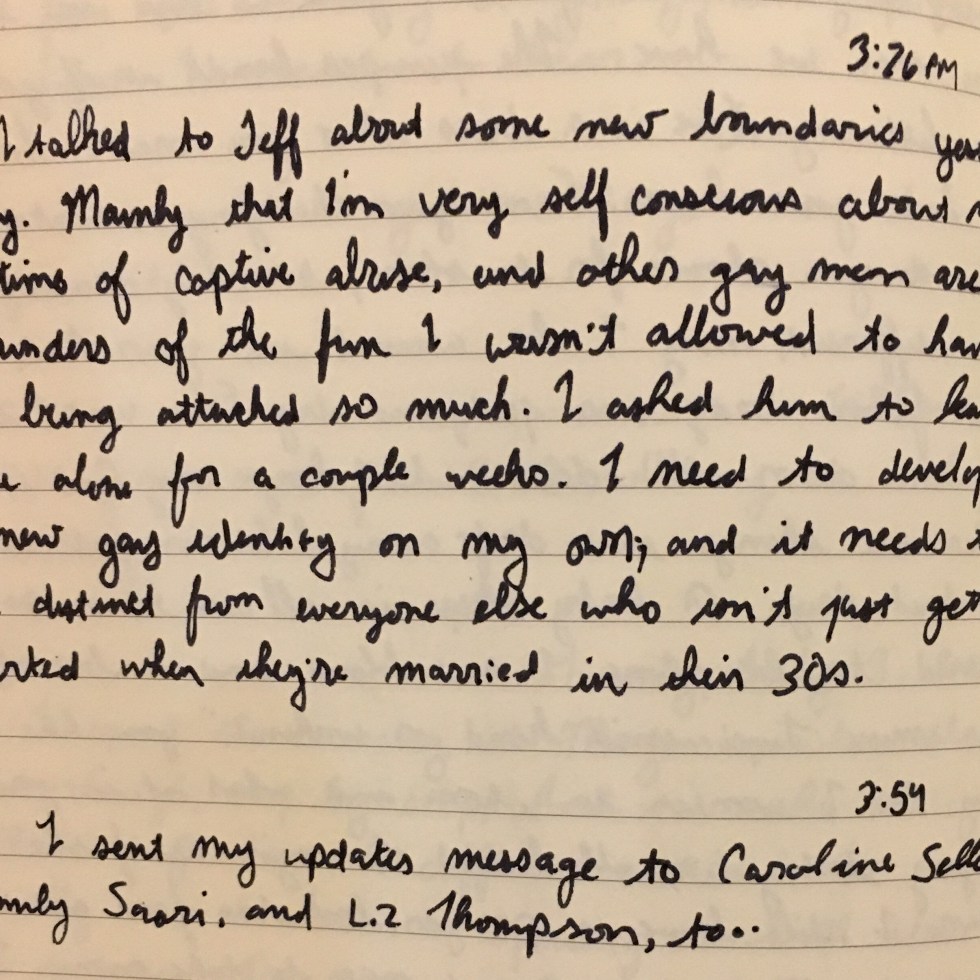 3:26 PM
I talked to Jeff about some new boundaries yes
y. Mainly that I'm very self conscious about
time of captive abuse, and other gay men are
unders of the fun I wasn't allowed to hav
being attacked so much. I asked him to lea
e alone for a couple weeks. I need to develop
new gay identity on my own; and it needs t
distinct from everyone else who isn't just get
rted when they're married in their 30s.
3:54
I sent my updates message to Caroline Sell
mily Saari, and Liz Thompson, too.